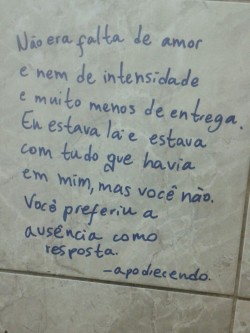 Não era falta de amor
e nem de intensidade
e muito menos de entrega.
Eu estava lá e estava
com tudo que havia
em mim, mas você não.
Você preferiu a
ausência como
resposta.
-apodrecendo.